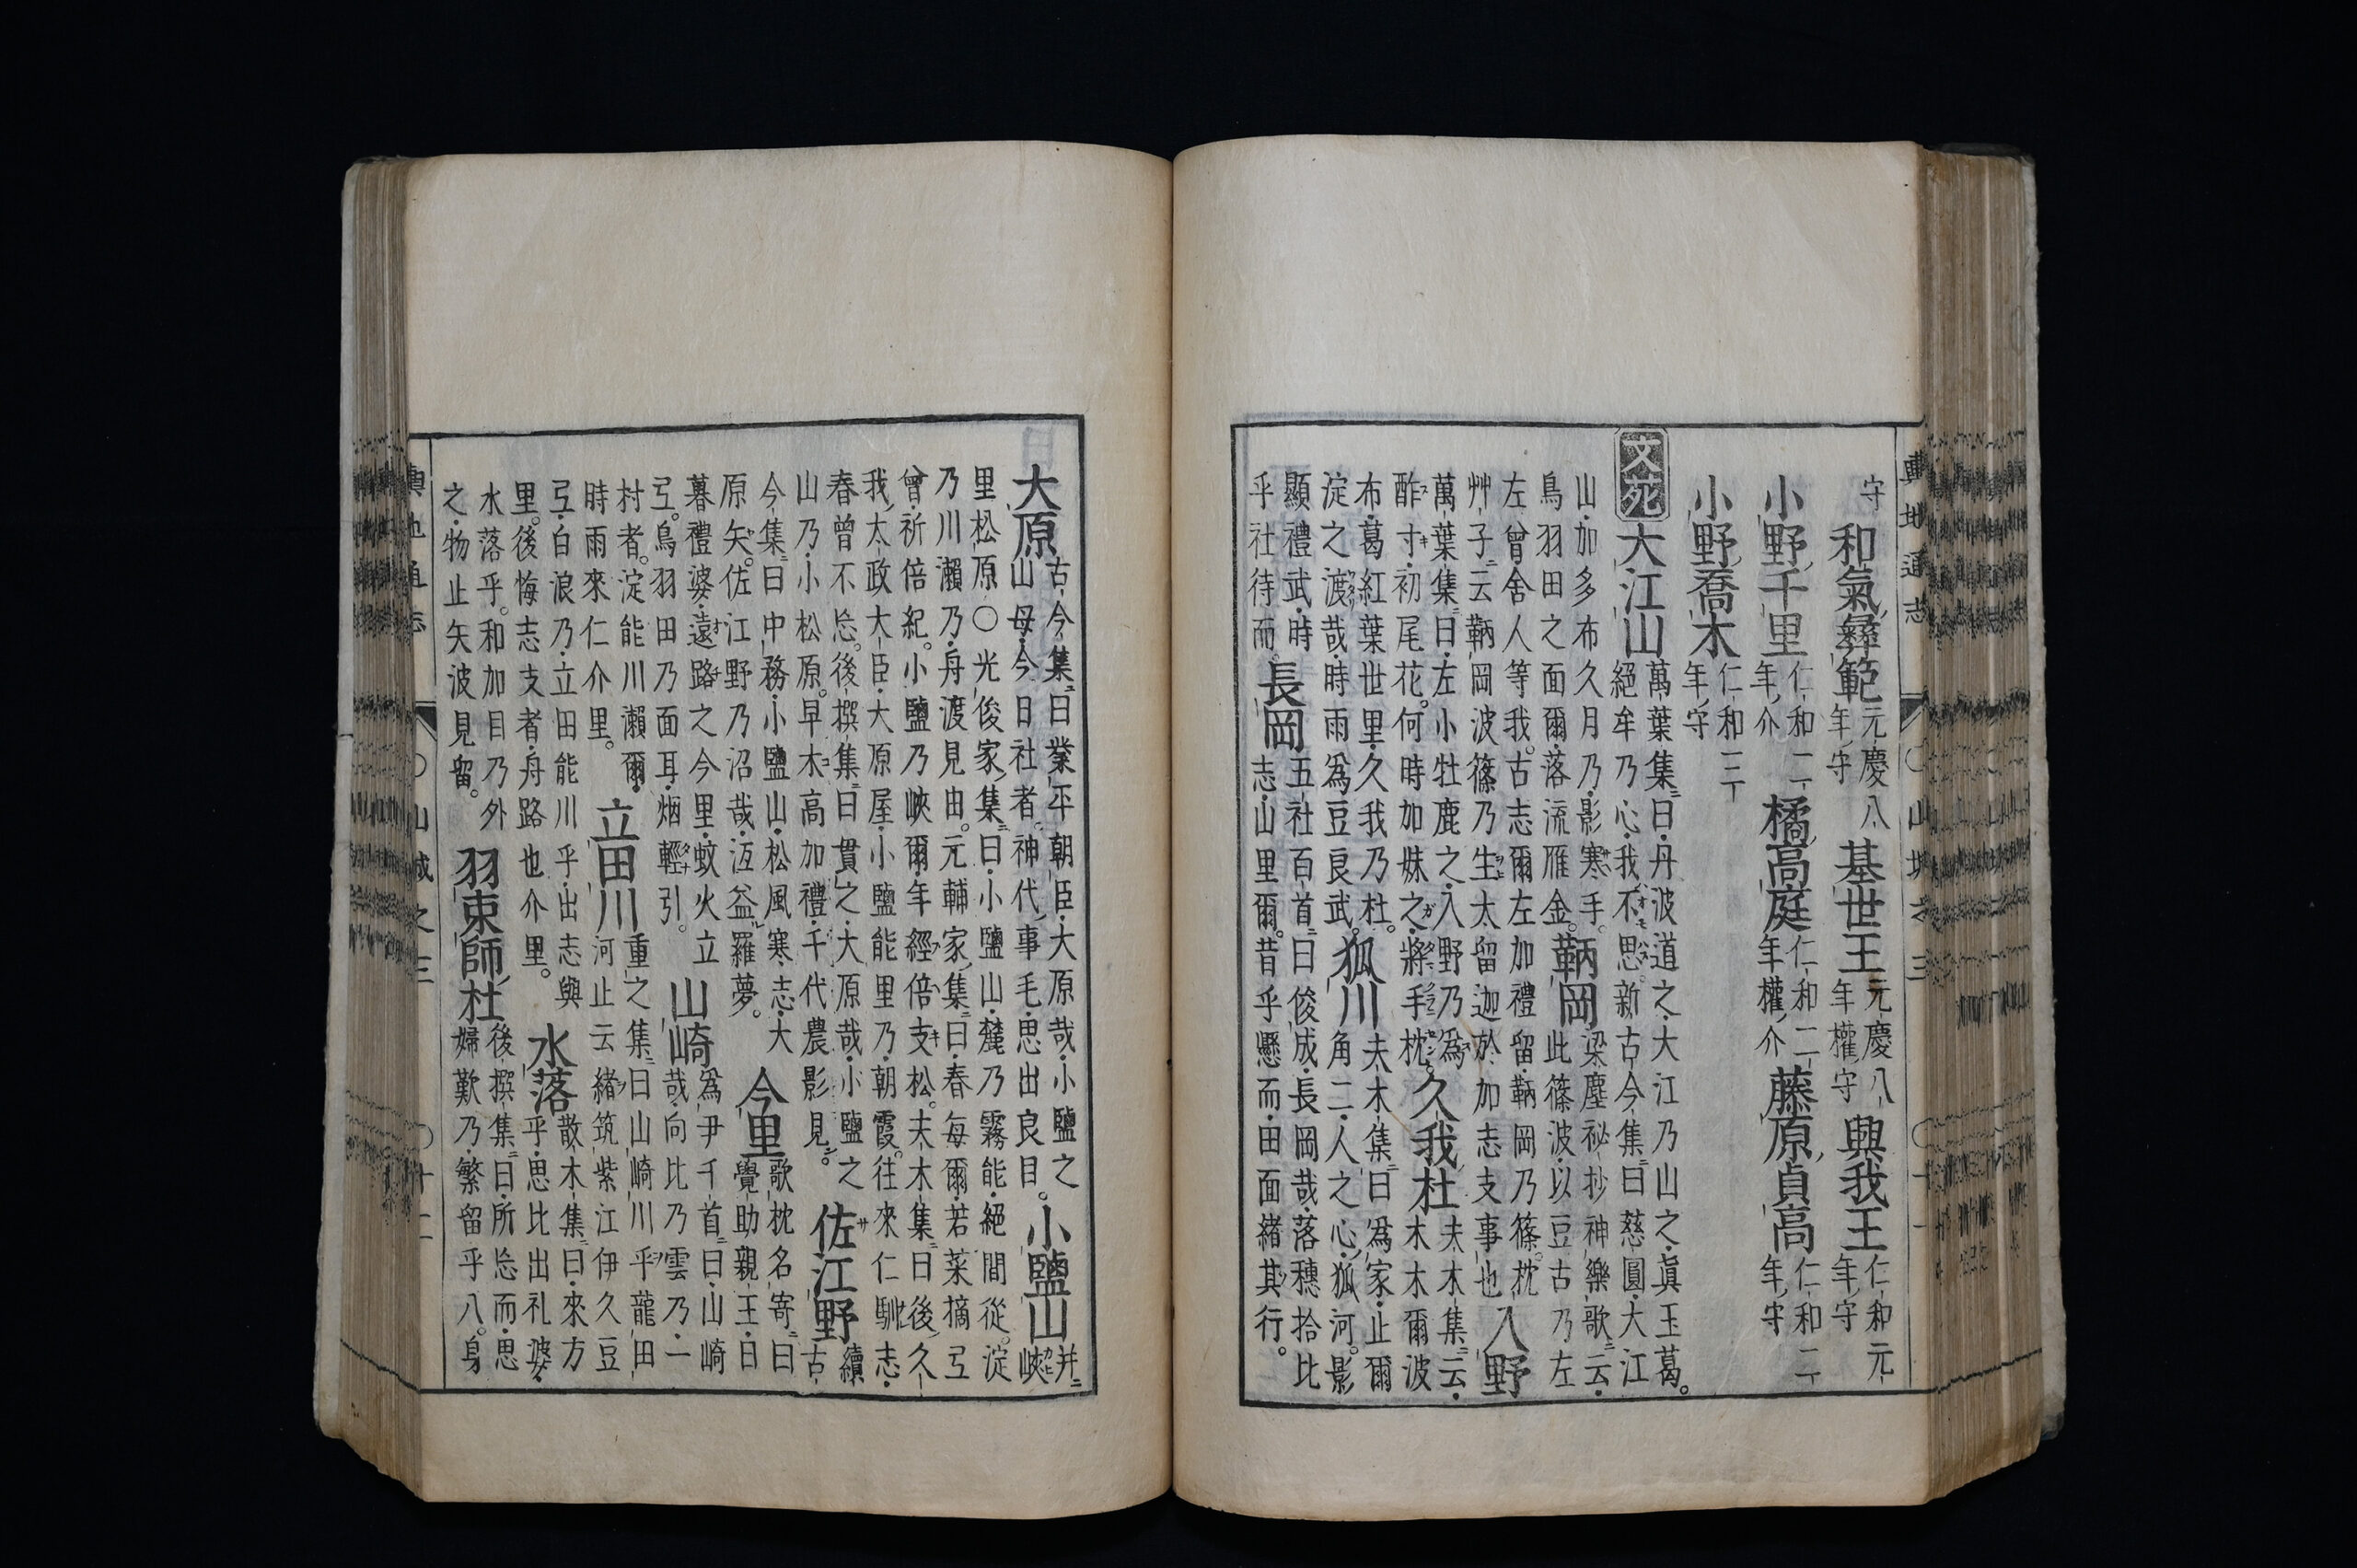 輿地通志 〇山城之三
守 和氣彝範 元慶八年守 基世王 元慶八年權守 興我王 仁和元年守
小野千里 仁和二年介 橘高庭 仁和二年權介 藤原貞高 仁和二年守
小野喬木 仁和三年守
文苑 大江山 萬葉集ニ曰丹波道之大江乃山之眞玉葛。
絕牟乃心我不思。新古今集ニ曰慈圓大江
山加多布久月乃影寒手。
鳥羽田之面爾落流雁金。 鞆岡 梁塵祕抄神樂歌ニ云
此篠波以豆古乃左
左曾舍人等我。古志爾左加禮留鞆岡乃篠。枕
艸子ニ云鞆岡波篠乃生太留迦於加志支事也 入野
萬葉集ニ曰左小牡鹿之入野乃爲
酢寸初尾花。何時加妹之將手枕。 久我杜 夫木集ニ云
木木爾波
布葛紅葉世里久我乃杜。
淀之渡哉時雨爲豆良武。 狐川 夫木集ニ曰爲家止爾
角二人之心狐河。影
顯禮武時
乎社待而。 長岡 五社百首ニ曰俊成長岡哉落穗拾比
志山里爾。昔乎懸而田面緒其行。
大原 古今集ニ曰業平朝臣大原哉小鹽之
山母今日社者。神代事毛思出良目。 小鹽山 并ニ
峽
里松原〇光俊家集ニ曰小鹽山麓乃霧能絕間從。淀
乃川瀨乃舟渡見由。元輔家集ニ曰春每爾若菜摘弖
曾祈倍紀。小鹽乃峽爾年經倍支松。夫木集ニ曰後久
我太政大臣大原屋小鹽能里乃朝霞。往來仁馴志
春曾不忘。後撰集ニ曰貫之大原哉小鹽之
山乃小松原。早木高加禮千代農影見。 佐江野 續
古
今集ニ曰中務小鹽山松風寒志大
原矢。佐江野乃沼哉冱益羅夢。 今里 歌枕名寄ニ曰
覺助親王日
暮禮婆遠路之今里蚊火立
弖。鳥羽田乃面耳烟輕引。 山崎 爲尹千首ニ曰山崎
哉向比乃雲乃一
村者。淀能川瀨爾
時雨來仁介里。 立田川 重之集ニ曰山崎川乎龍田
河止云緒筑紫江伊久豆
弖白浪乃立田能川乎出志與
里。後悔志支者舟路也介里。 水落 散木集ニ曰來方
乎思比出礼婆
水落乎。和加目乃外
之物止矢波見留。 羽束師杜 後撰集ニ曰所忘而思
婦歎乃繁留乎八。身
輿地通志 〇山城之三 〇十二